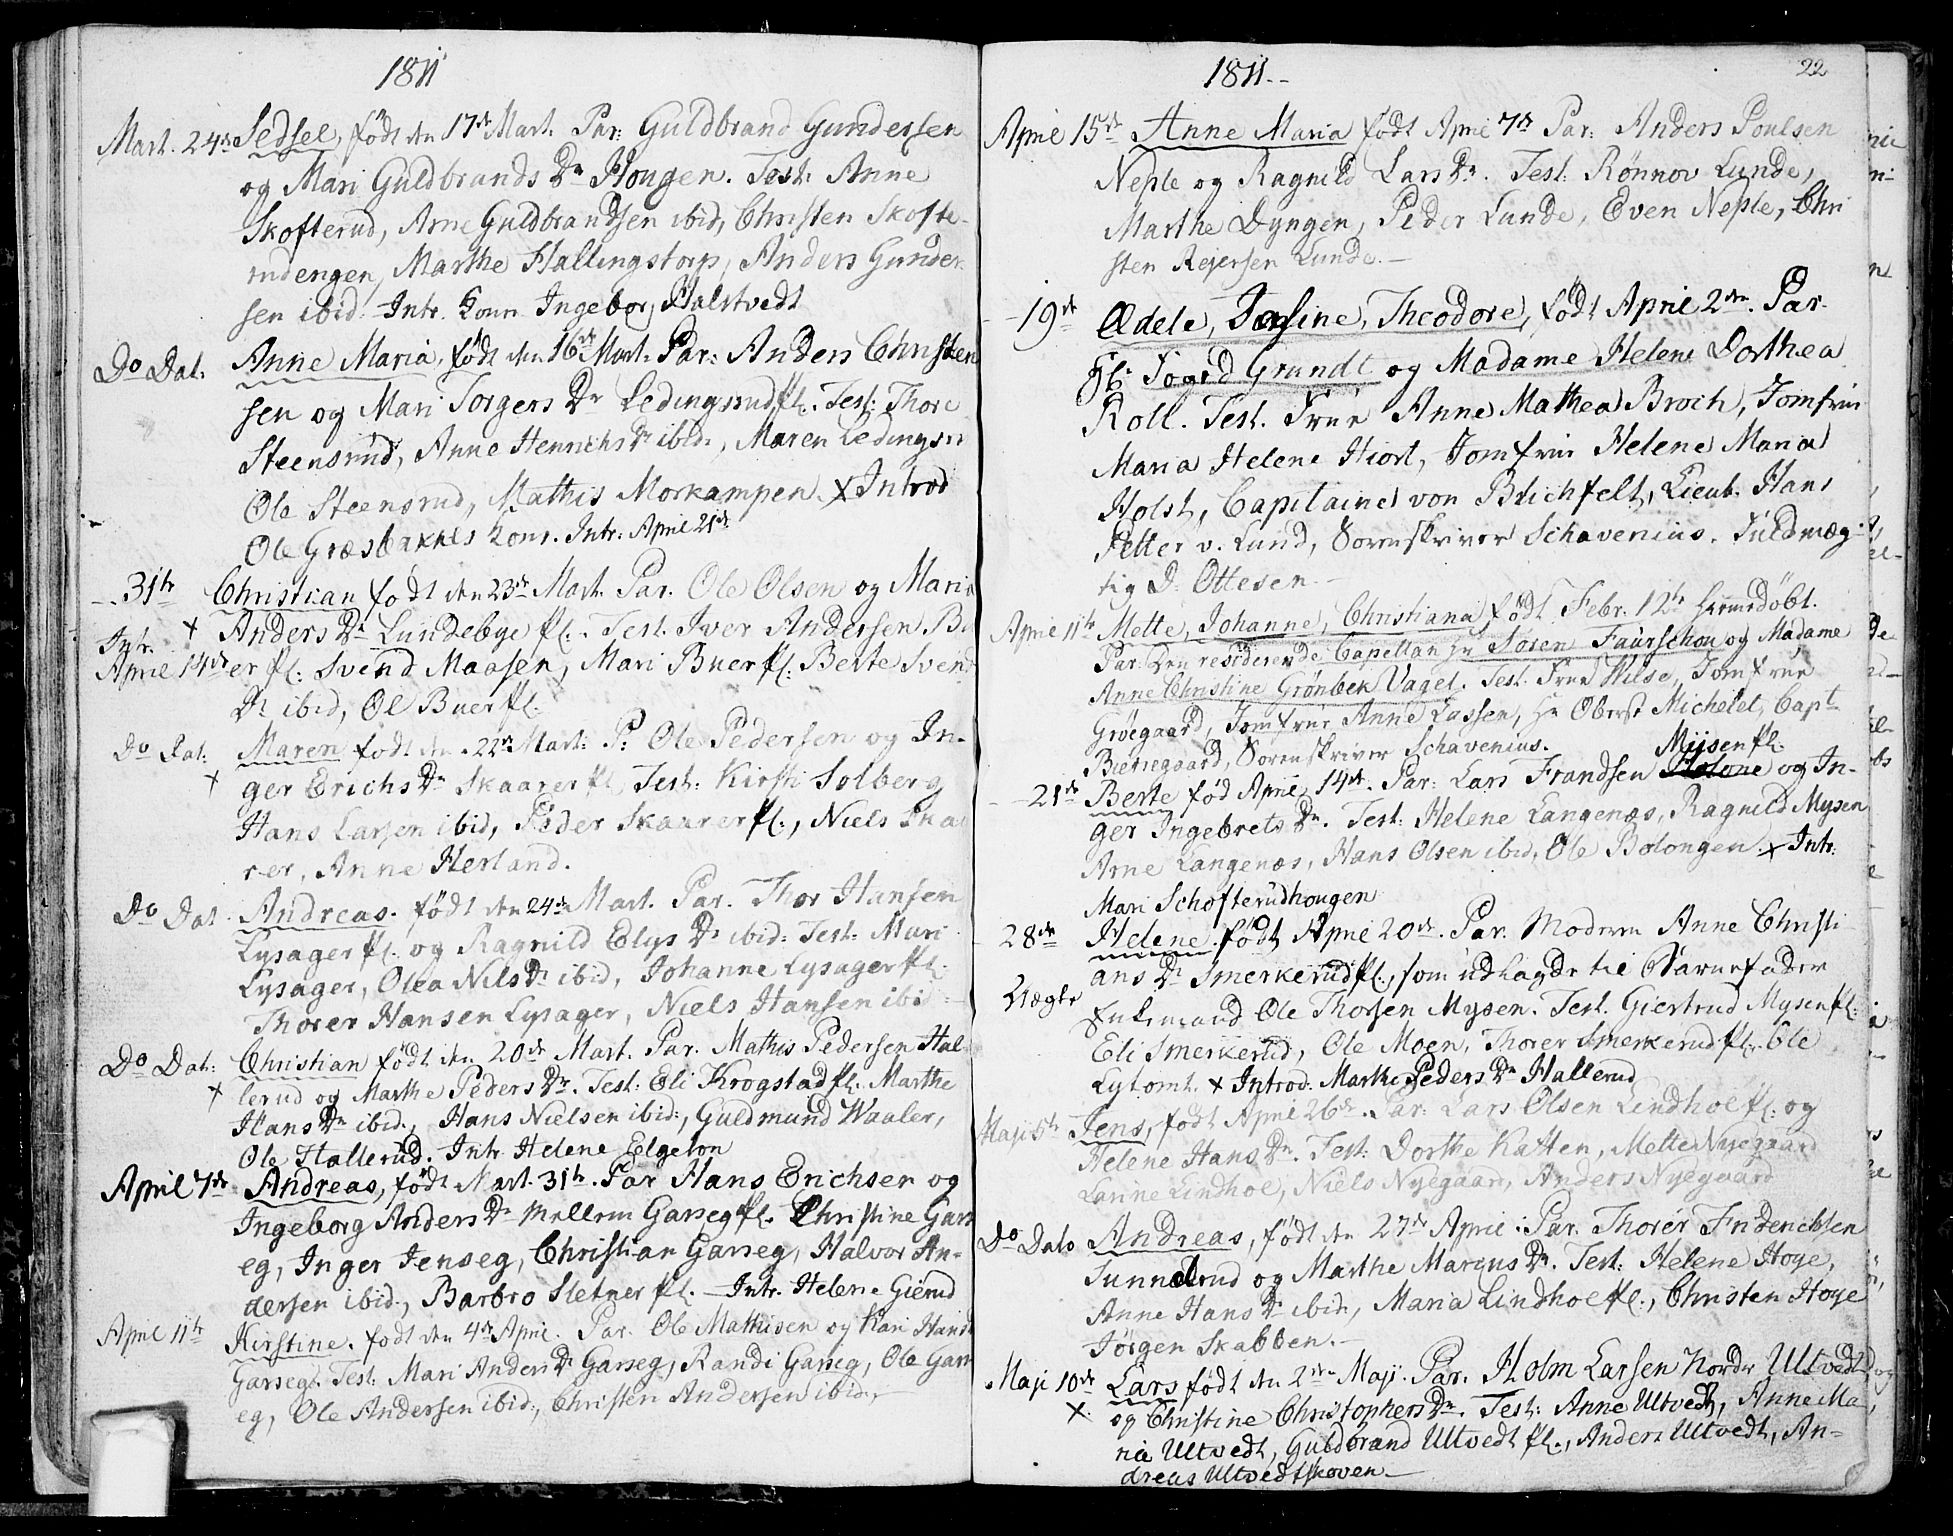 1811
Mart. 24de Sedsel, født den 17de Mart. Par: Guldbrand Gundersen
og Mari Guldbrands Dr Hougen. Test: Anne
Skofterud, Arne Guldbrandsen ibid, Christen Skofte-
rudengen, Marthe Hallingstorp, Anders Gunder-
sen ibid. Intr. Konen Ingeborg Halstvedt
Do Dat: Anne Maria, født den 16de Mart. Par: Anders Christen
sen og Mari Torgers Dr Ledingsrud fl. Test: Thore
Steensrud, Anne Henrichs Dr ibid., Maren Ledingsr
Ole Steensrud, Mathis Morkampen x Introd
Ole Græsbakkes Kone. Intr. April 21de
31te Christian født den 23de Mart. Par. Ole Olsen og Maria
Intr. x Anders Dr Lundebye fl. Test. Iver Andersen Bu
April 14de er fl: Svend Maasen, Mari Buer fl: Berte Svend
Dr ibid, Ol Buer fl.
Do Dat: Maren født den 22de Mart: P: Ole Pedersen og In-
x ger Erichs Dr Skaarer fl. Test: Kirsti Solberg
Hans Larsen ibid, Peder Skaarer fl., Niels Skaa
rer, Anne Herland.
Do Dat. Andreas. født den 24de Mart. Par. Thor Hansen
Lysager fl. og Ragnild Elys Dr ibid: Test: Mari
Lysager, Olea Nils Dr ibid, Johanne Lysager fl.
Thorer Hansen Lysager, Niels Hansen ibid
Do Dat: Christian født den 20de Mart. Par. Mathis Pedersen Hal-
x lerud og Marthe Peders Dr. Test: Eli Krogstad fl. Marthe
Hans Dr ibid., Hans Nielsen ibid:, Guldmund Waaler,
Ole Hallerud. Intr. Helene Elgeton
April 7de Andreas, født Mart. 31te. Par Hans Erichsen og
Ingeborg Anders Dr Mellem Garseg fl. Christine Gars
eg, Inger Jenseg, Christian Garseg, Halvor An-
dersen ibid., Barbro Sletner fl. Intr. Helene Gierud
April 11te Kirstine. født den 4de April. Par. Ole Mathisen og Kari Hans
Garseg. Test: Mari Anders Dr Garseg, Randi Garseg, Ole Gars
eg, Ole Andersen ibid., Christen Andersen ibid.
1811
22
April 15de Anne Maria født April 7de Par: Anders Poulsen
Neple og Ragnild Lars Dr. Test: Rønnov Lunde,
Marthe Dyngen, Peder Lunde, Even Neple, Chri
sten Rejersen Lunde.
19de Ædele, Josine, Theodore, født April 2den. Par.
Hr. Foged Grundt og Madame Helene Dorthea
Roll. Test. Frue Anne Mathea Broch, Jomfrue
Maria Helene Hiort, Jomfrue Helene Maria
Holst, Capitaine von Blichfelt, Lieut. Hans
Petter v. Lund, Sorenskriver Schavenius. Fuldmæg-
tig D. Ottesen.
April 11te Mette, Johanne, Christiana født Febr. 12te Hiemedøbt.
Par: Den residerende Capellan Hr Søren Faurschou og Madame
Anne Christine Grønbek Vaget. Test. Frue Wilse, Jomfrue
Grøegaard, Jomfrue Anne Lassen, Hr Oberst Michelet, Capt
Bierregaard, Sorenskriver Schavenius.
Mysen fl.
21de Berte fød April 14de. Par: Lars Frandsen og In-
ger Ingebrets Dr. Test: Helene Langenæs, Ragnild Mysen
Arne Langenæs, Hans Olsen ibid, Ole Bolongen. x Intr.
Mari Schofterudhougen
28de Helene født April 20de. Par. Moderen Anne Christi-
ans Dr Smerkerud fl., som udlagde til Barnefader
Uægte Enkemand Ole Thorsen Mysen. Test. Giertrud Mysen fl.
Eli Smerkerud, Ole Moen, Thorer Smerkerud fl. Ole
Lytomt. x Introd. Marthe Peders Dr Hallerud
Maji 5te Jens, født April 26de. Par: Lars Olsen Lindhol fl. og
Helene Hans Dr. Test: Dorthe Katten, Mette Nyegaard
Larine Lindhol, Niels Nyegaard, Anders Nyegaard
Do Dato Andreas, født den 27de April. Par. Thorer Fridenichsen
Tunnelrud og Marthe Marcus Dr. Test: Helene Hoye,
Anne Hans Dr ibid., Maria Lindhol fl., Christen Hoye
Jørgen Skabben.
Maji 10de Lars født den 2den Maji. Par. Holm Larsen Norder Ultvedt
x og Christine Christophers Dr. Test: Anne Ultvedt, Anne Ma
ria Ultvedt, Guldbrand Ultvedt fl., Anders Ultvedt, An-
dreas Ultvedtskoven